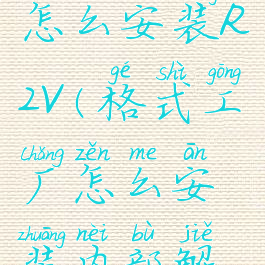 怎么安装R
gé shì gōng
2V(格式工
chǎng zěn me ān
厂怎么安
zhuāng nèi bù jiě
装内部解